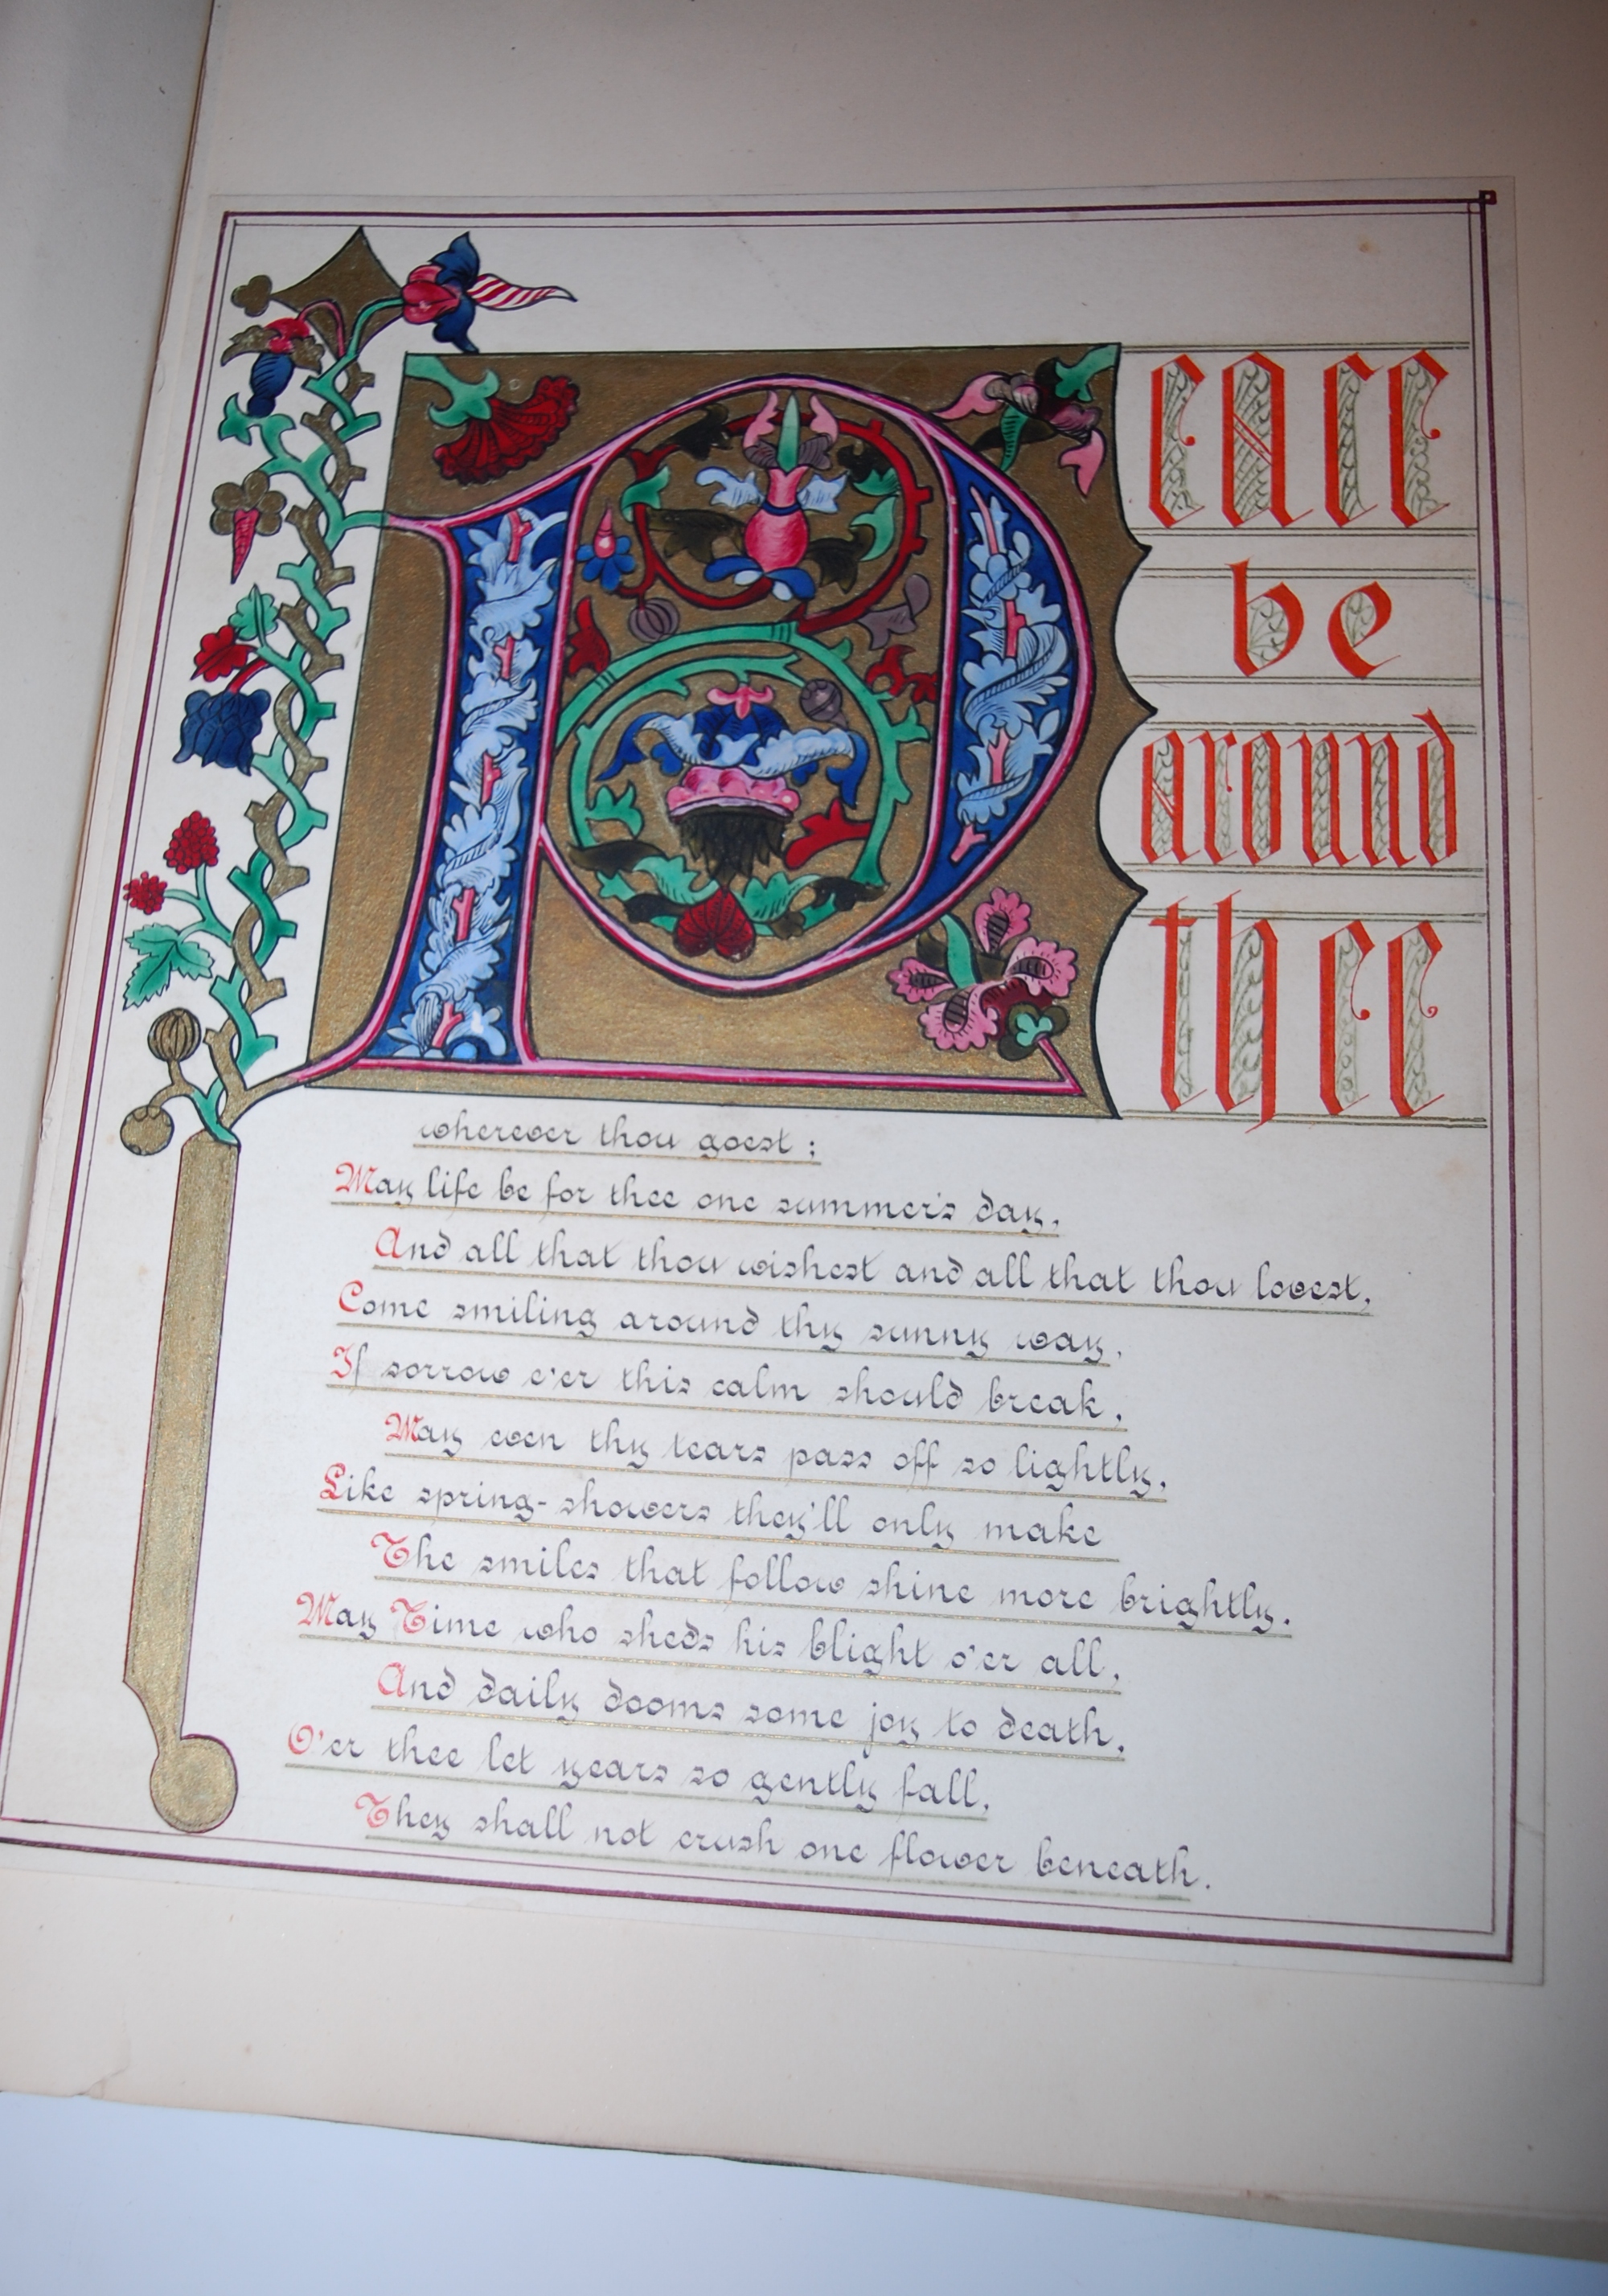 Peace
be
around
thee
wherever thou goest;
May life be for thee one summer's day,
And all that thou wishest and all that thou lovest,
Come smiling around thy sunny way,
If sorrow e'er this calm should break,
May even thy tears pass off so lightly,
Like spring-showers they'll only make
The smiles that follow shine more brightly.
May Time who sheds his blight o'er all,
And daily dooms some joy to death,
O'er thee let years so gently fall,
They shall not crush one flower beneath.